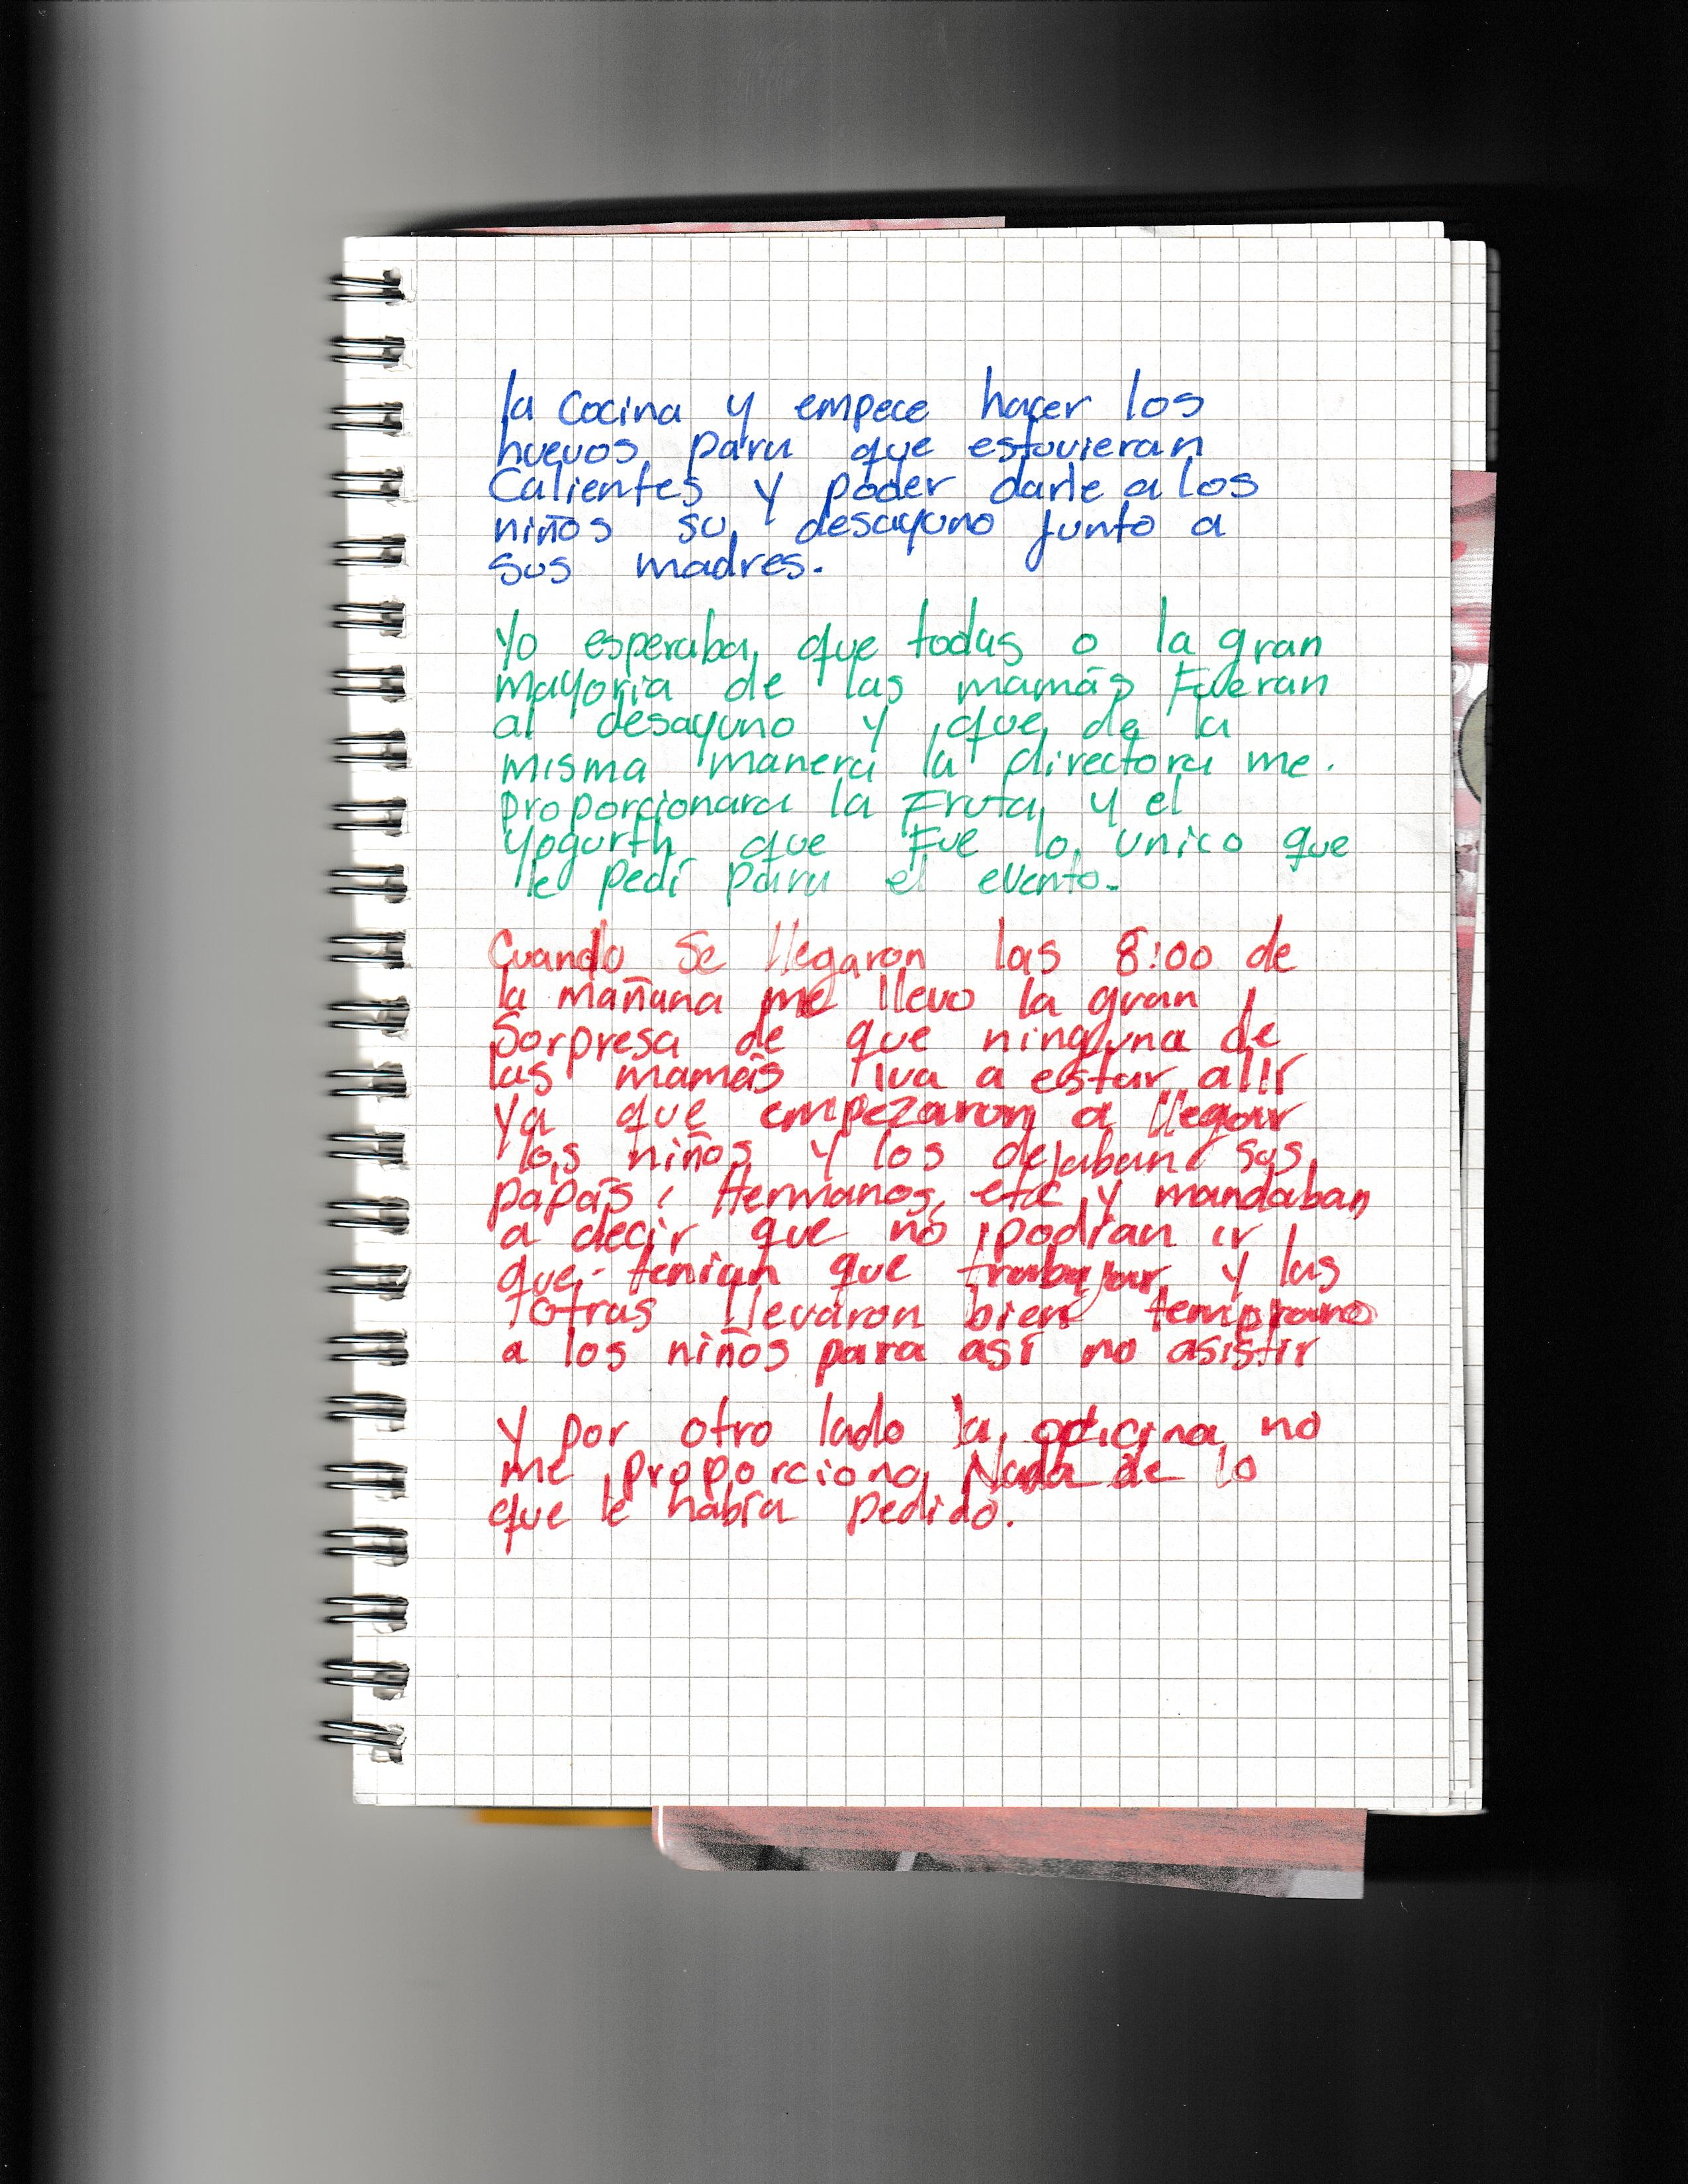 la cocina y empece hacer los
huevos para que estuvieran
Calientes y poder darle a los
niños su desayuno junto a
sus madres.
Yo esperaba que todas o la gran
mayoria de las mamás Fueran
al desayuno y que de la
misma manera la directora me.
proporcionara la Fruta y el
yogurth que Fue lo unico que
le pedí para el evento.
Cuando se llegaron las 8:00 de
la mañana me llevo la gran
Sorpresa de que ninguna de
las mamás iva a estar allí
ya que empezaron a llegar
los niños y los dejaban sus
papás, Hermanos, etc y mandaban
a decir que no podrían ir
que tenian que trabajar y las
otras llevaron bien temprano
a los niños para así no asistir
Y por otro lado la no
me proporciono Nada de lo
que le había pedido.